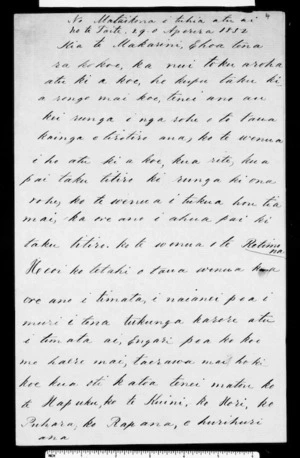 Na Mataikona i tuhia atu ai
no te Taite, 29 o Aperira 1852
Kia te Makarini, Ehoa tena
ra ko koe, ka nui toku aroha
atu ki a koe, he kupu taku ki
a rongo mai koe, tenei ano au
kei runga i nga rohe o to taua
kainga e tirotiro ana, ko te wenua
i ho atu ki a koe, kua rite, kua
pai taku titiro ki runga ki ona
rohe, ko te wenua i tukua hou tia
mai, ka ore ano i ahua pai ki
taku titiro. ko te wenua o te
Heoi ko tetahi o taua wenua kua
ore ano i timata, i naianei pea i
muri i tena tukunga karere atu
i timata ai, Engari pea ko koe
mo haere mai, taerawa mai hoki
koe kua oti katoa tenei matou ko
te Hapuku, ko te Kuini, ko Hori, ko
Puhara, ko Rapana, e hurihuri
ana